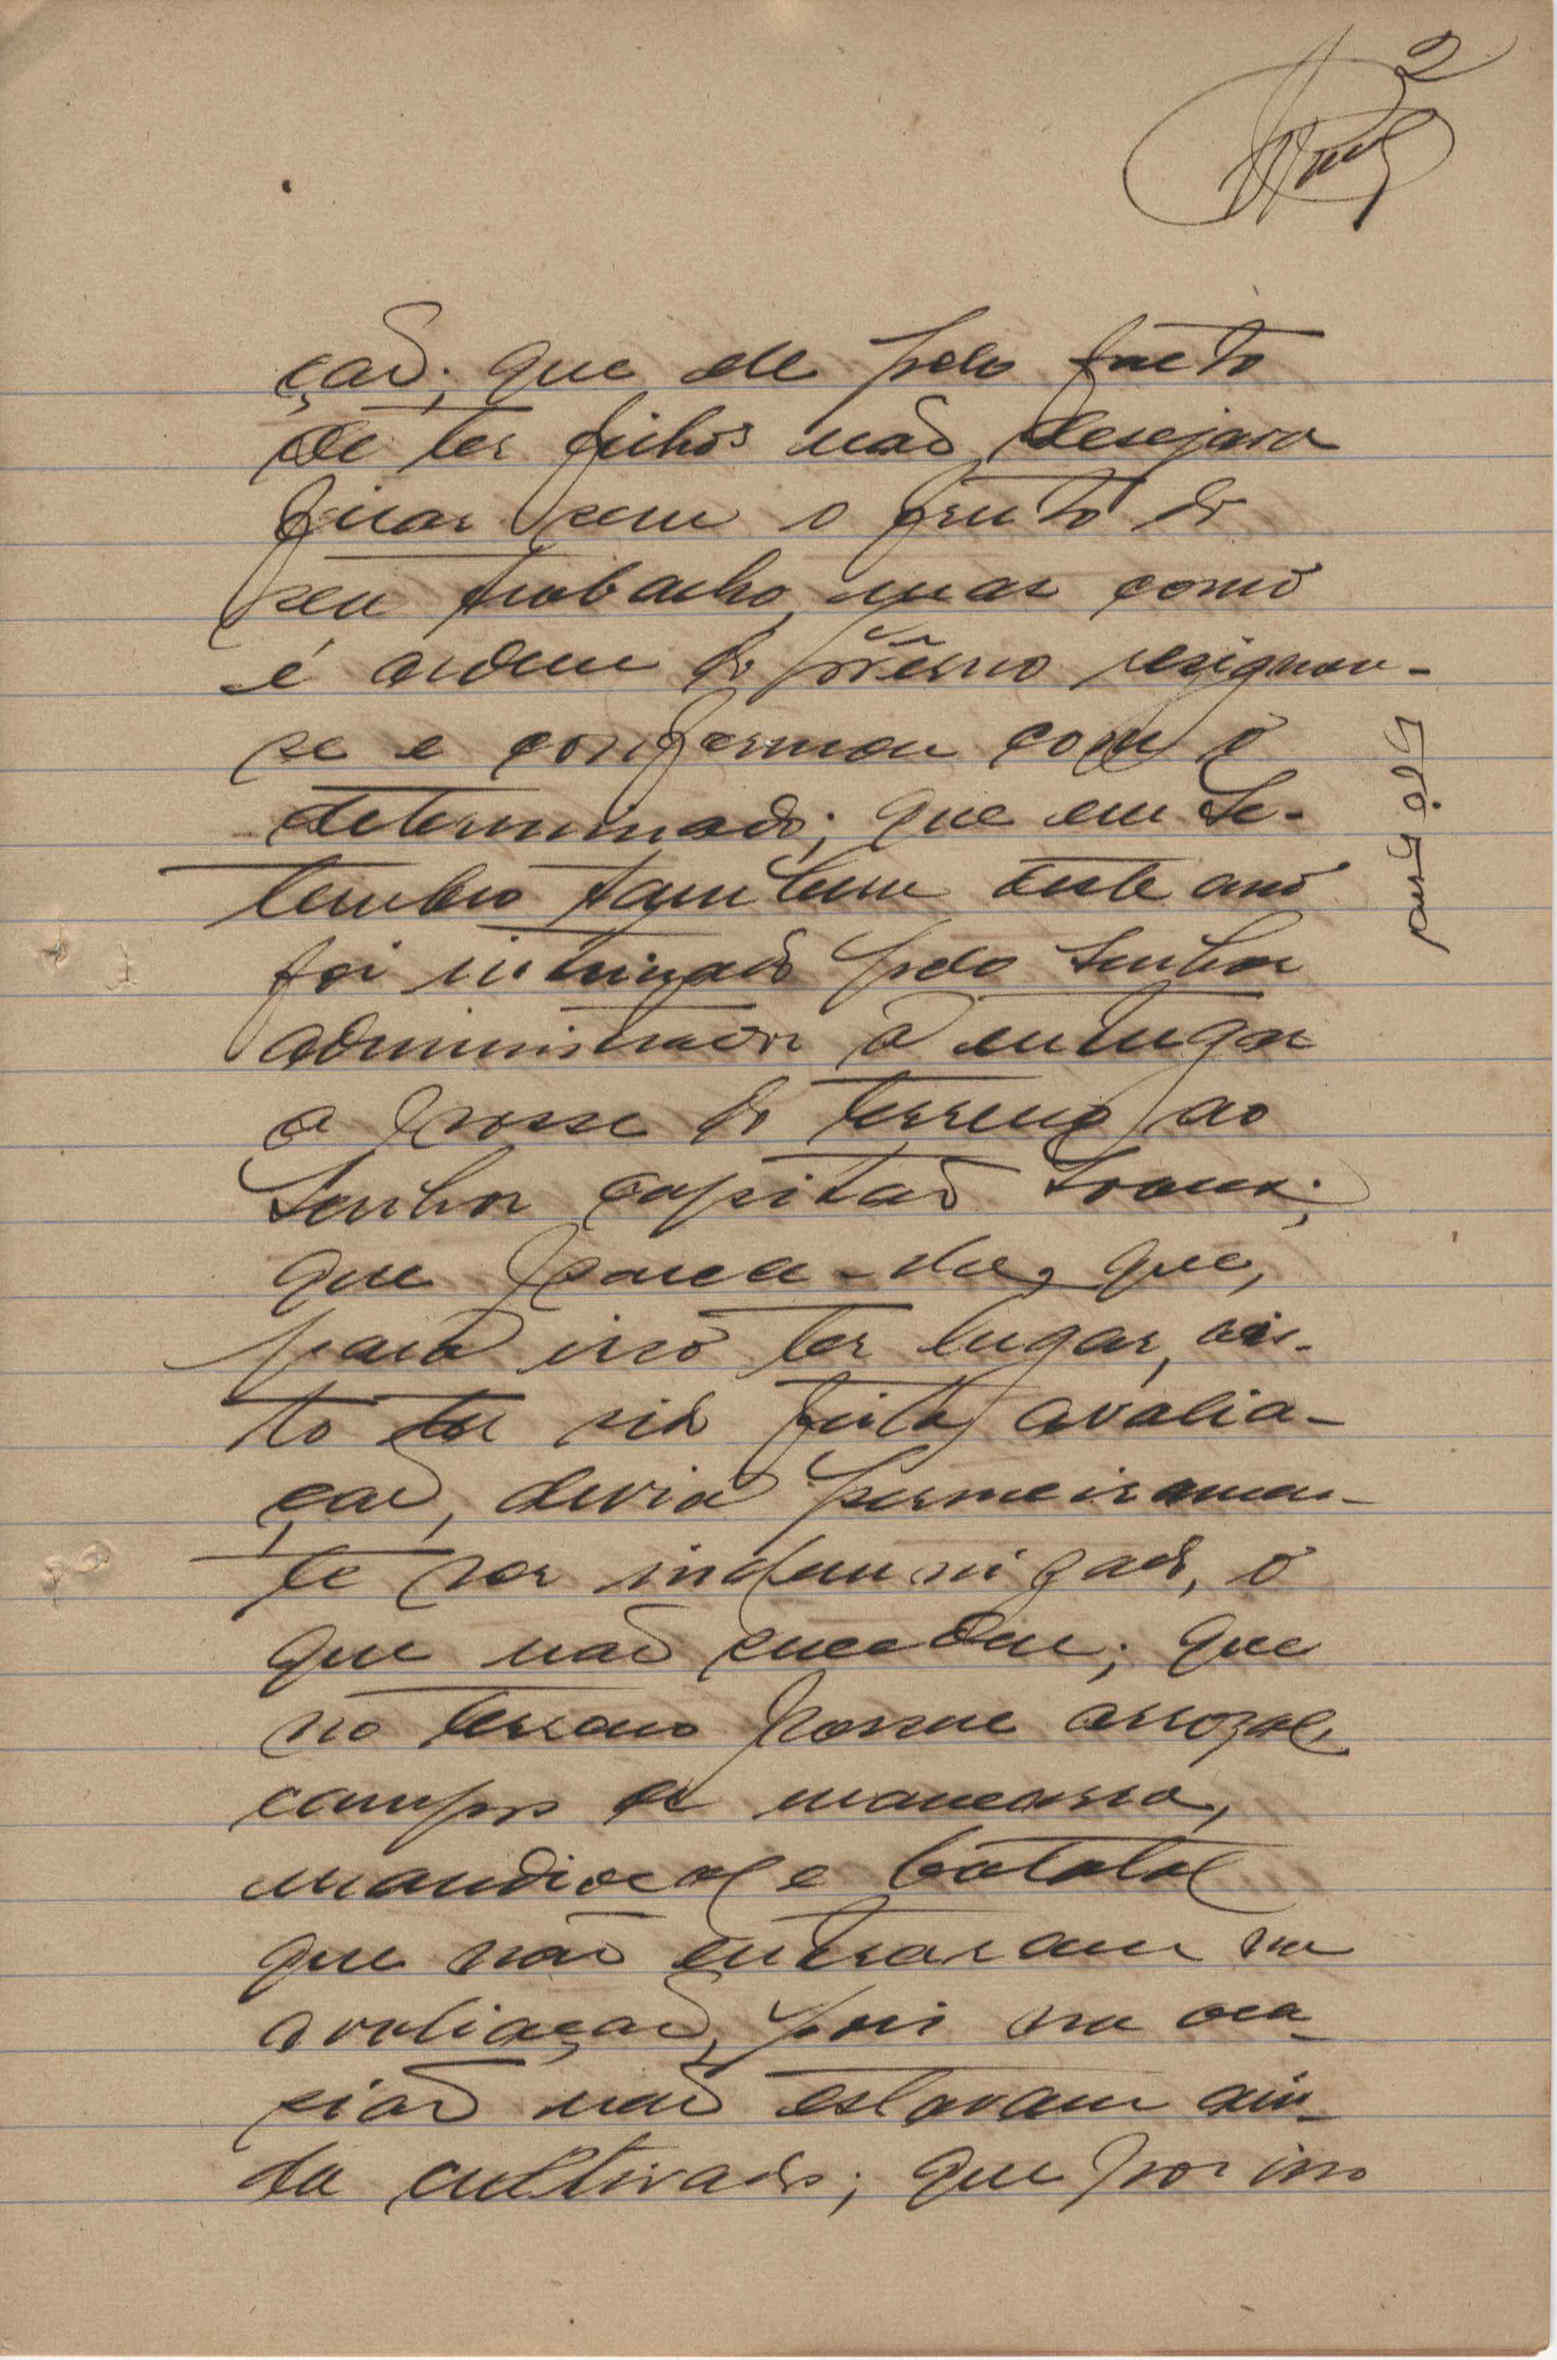 2
ção; que ele pelo facto
de ter filhos não desejava
ficar sem o fruto do
seu trabalho, mas como
é ordem do resignou-
se e conformou com o
determinado; que em Se-
tembro tambem deste ano
foi intimado pelo Senhor
administrador a entregar
a posse do terreno ao
Senhor capitão
que parece-lhe que,
para isso ter lugar, vis-
to ter sido feita avalia-
ção, devia primeiramen-
te ser indemnizado, o
que não sucedeu; que
no terreno possue arrozal,
campos de mancarra,
mandiocal e batatal
que não entraram na
avaliação, pois na oca-
sião não estavam ain-
da cultivados; que por isso